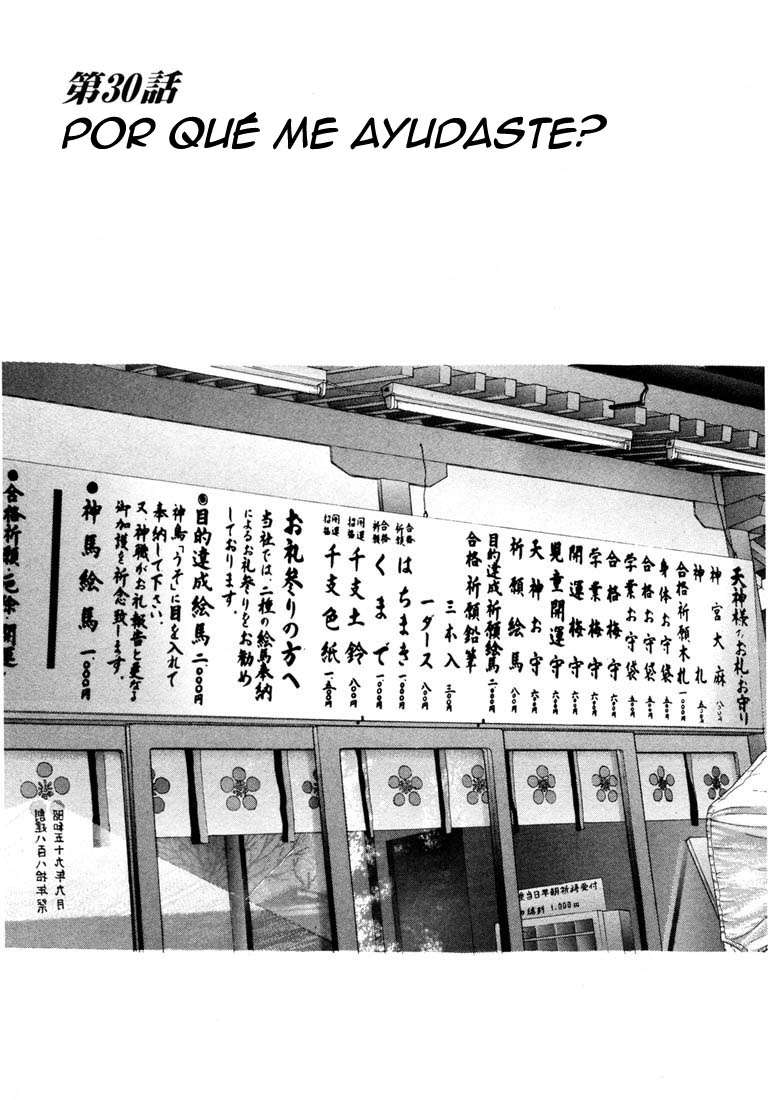 第30話
POR QUÉ ME AYUDASTE?
天神様のお札お守り
神宮大麻
神札
合格祈願木札 1,000円
身体お守袋
合格お守袋
学業お守袋
合格梅守 六〇〇円
学業梅守 六〇〇円
開運梅守 六〇〇円
児童開運守 六〇〇円
天神お守 六〇〇円
祈願絵馬 八〇〇円
目的達成祈願絵馬 二、〇〇〇円
合格祈願鉛筆
三本入 三〇〇円
一ダース 八〇〇円
合格祈願 はちまき
合格祈願 くまで 1,000円
開運招福 干支土鈴 八〇〇円
開運招福 干支色紙
お礼参りの方へ
当社では、二種の絵馬奉納
によるお礼参りをお勧め
しております。
●目的達成絵馬 二、〇〇〇円
神鳥「うそ」に目を入れて
奉納して下さい。
又、神職がお礼報告と更なる
御加護を祈念致します。
●神馬絵馬 一、〇〇〇円
●合格祈願・厄除・開運
当日早朝祈祷受付
1,000円
昭和五十九年九月
創建八百八拾年祭